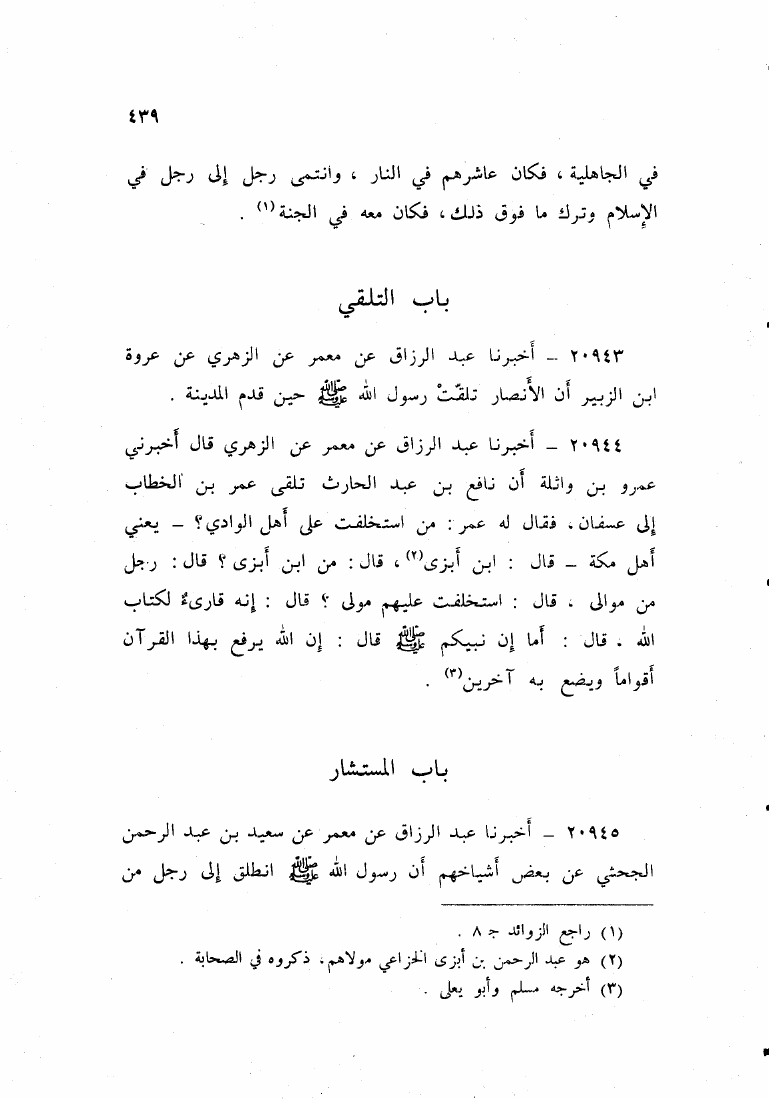 ٤٣٩
في الجاهلية ، فكان عاشرهم في النار ، وانتمى رجل إلى رجل في
الإسلام وترك ما فوق ذلك ، فكان معه في الجنة (١) .
باب التلقي
٢٠٩٤٣ – أخبرنا عبد الرزاق عن معمر عن الزهري عن عروة
ابن الزبير أن الأنصار تلقّتْ رسول الله ﷺ حين قدم المدينة .
٢٠٩٤٤ – أخبرنا عبد الرزاق عن معمر عن الزهري قال أخبرني
عمرو بن واثلة أن نافع بن عبد الحارث تلقى عمر بن الخطاب
إلى عسفان ، فقال له عمر : من استخلفت على أهل الوادي ؟ – يعني
أهل مكة – قال : ابن أبزى (٢) ، قال : من ابن أبزى ؟ قال : رجل
من موالى ، قال : استخلفت عليهم مولى ؟ قال : إنه قارىءٌ لكتاب
الله ، قال : أما إن نبيكم ﷺ قال : إن الله يرفع بهذا القرآن
أقواماً ويضع به آخرين (٣) .
باب المستشار
٢٠٩٤٥ – أخبرنا عبد الرزاق عن معمر عن سعيد بن عبد الرحمن
الجحشي عن بعض أشياخهم أن رسول الله ﷺ انطلق إلى رجل من
(١) راجع الزوائد ج ٨ .
(٢) هو عبد الرحمن بن أبزى الخزاعي مولاهم ، ذكروه في الصحابة .
(٣) أخرجه مسلم وأبو يعلى .